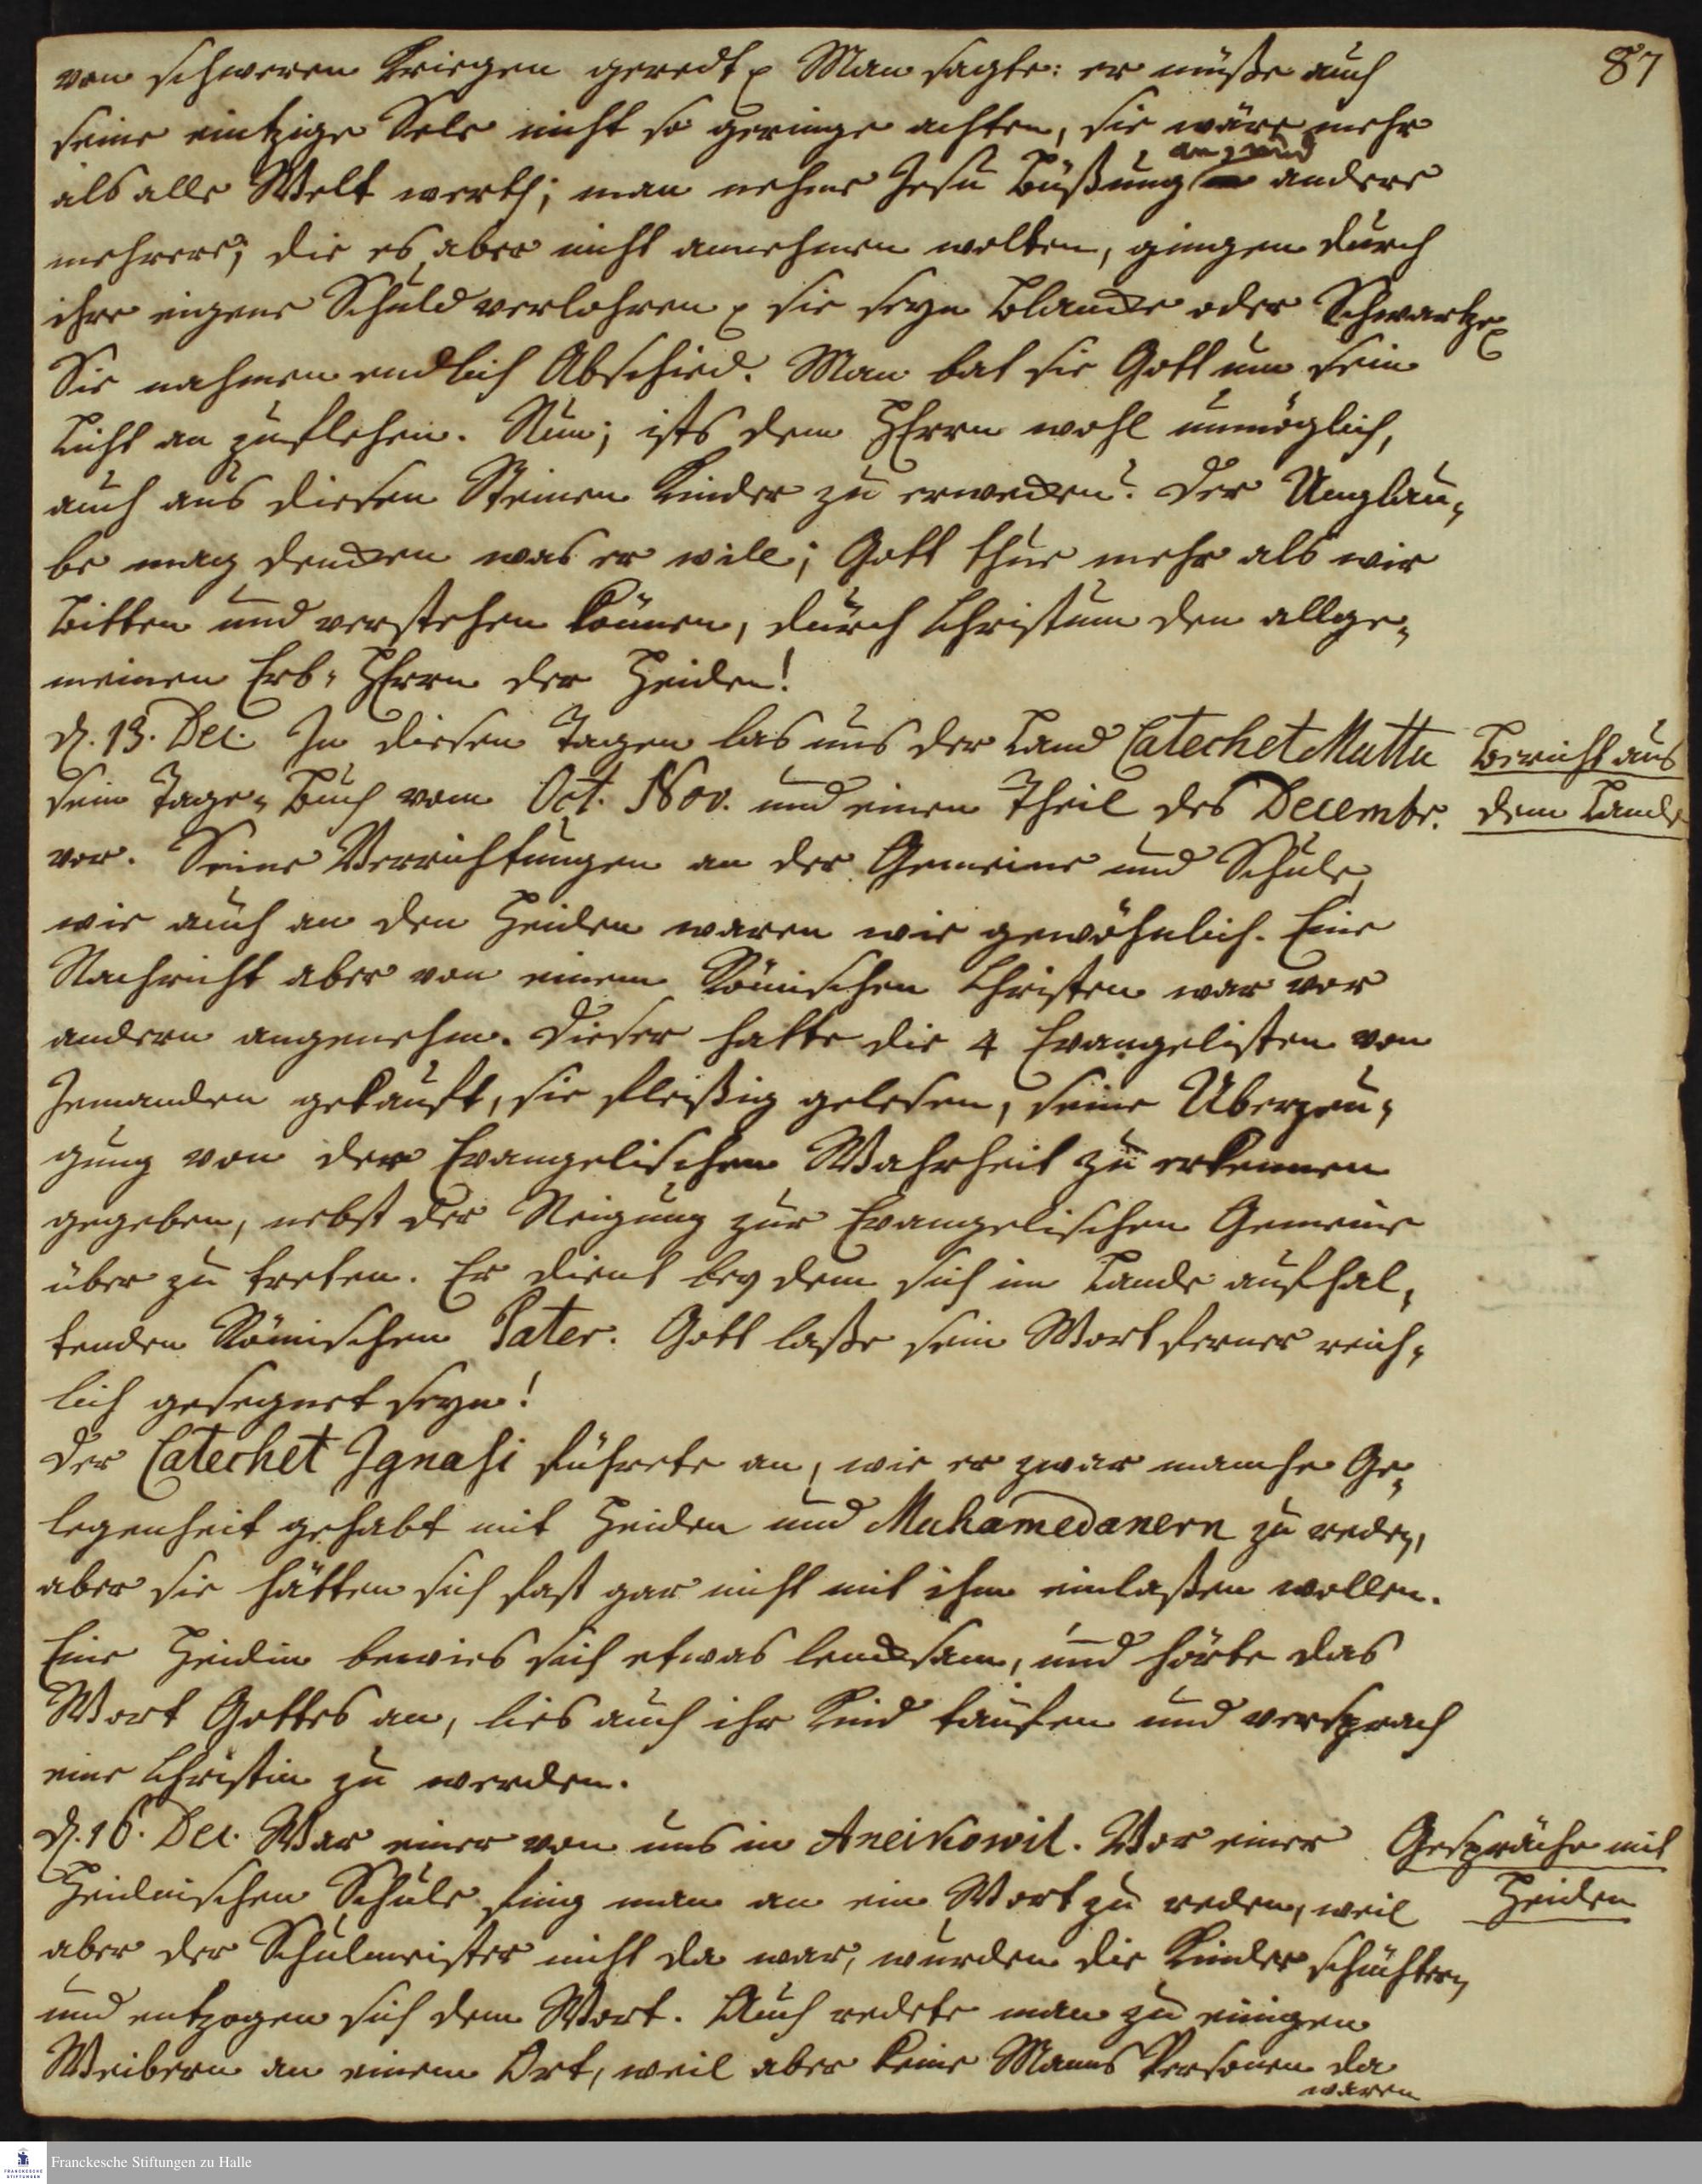 87
von schweren Kriegen geredt p Man sagte: er müße auch
seine eintzige Sele nicht so geringe achten, sie wäre mehr
als alle Welt werth; man nehme Jesu Büßung an, und andere
mehrere; die es aber nicht annehmen wolten, gingen durch
ihre eigene Schuld verlohren p sie seyn Blancke oder Schwartze p
Sie nahmen endlich Abschied. Man bat sie Gott um sein
Licht an zuflehen. Nun; ists dem HErrn wohl unmöglich,
auch aus diesen Steinen Kinder zu erwecken? Der Unglau-
be mag dencken was er will; Gott thue mehr als wir
bitten und verstehen können, durch Christum den allge-
meinen Erb-HErrn der Heiden!
d. 13. Dec. In diesen Tagen las uns der Land Catechet Muttu
sein Tage-Buch vom Oct. Nov. und einen Theil des Decembr.
vor. Seine Verrichtungen an der Gemeine und Schule,
wie auch an den Heiden waren wie gewöhnlich. Eine
Nachricht aber von einem Römischen Christen war vor
andern angenehm. Dieser hatte die 4 Evangelisten von
Jemanden gekauft, sie fleißig gelesen, seine Uberzeu-
gung von der Evangelischen Wahrheit zu erkennen
gegeben, nebst der Neigung zur Evangelischen Gemeine
über zu treten. Er dient bey dem sich im Lande aufhal-
tenden Römischen Pater. Gott laße sein Wort ferner reich-
lich gesegnet seyn!
Der Catechet Ignasi führete an, wie er zwar manche Ge-
legenheit gehabt mit Heiden und Muhamedanern zu reden,
aber sie hätten sich fast gar nicht mit ihm einlaßen wollen.
Eine Heidin bewies sich etwas lencksam, und hörte das
Wort Gottes an, lies auch ihr Kind taufen und versprach
eine Christin zu werden.
d. 16. Dec. War einer von uns in Aneikowil. Vor einer
Heidnischen Schule fing man an ein Wort zu reden, weil
aber der Schulmeister nicht da war, wurden die Kinder schüchtern
und entzogen sich dem Wort. Auch redete man zu einigen
Weibern an einem Ort, weil aber keine Manns Personen da
waren
Bericht aus
dem Lande
Gespräche mit
Heiden
Franckesche Stiftungen zu Halle